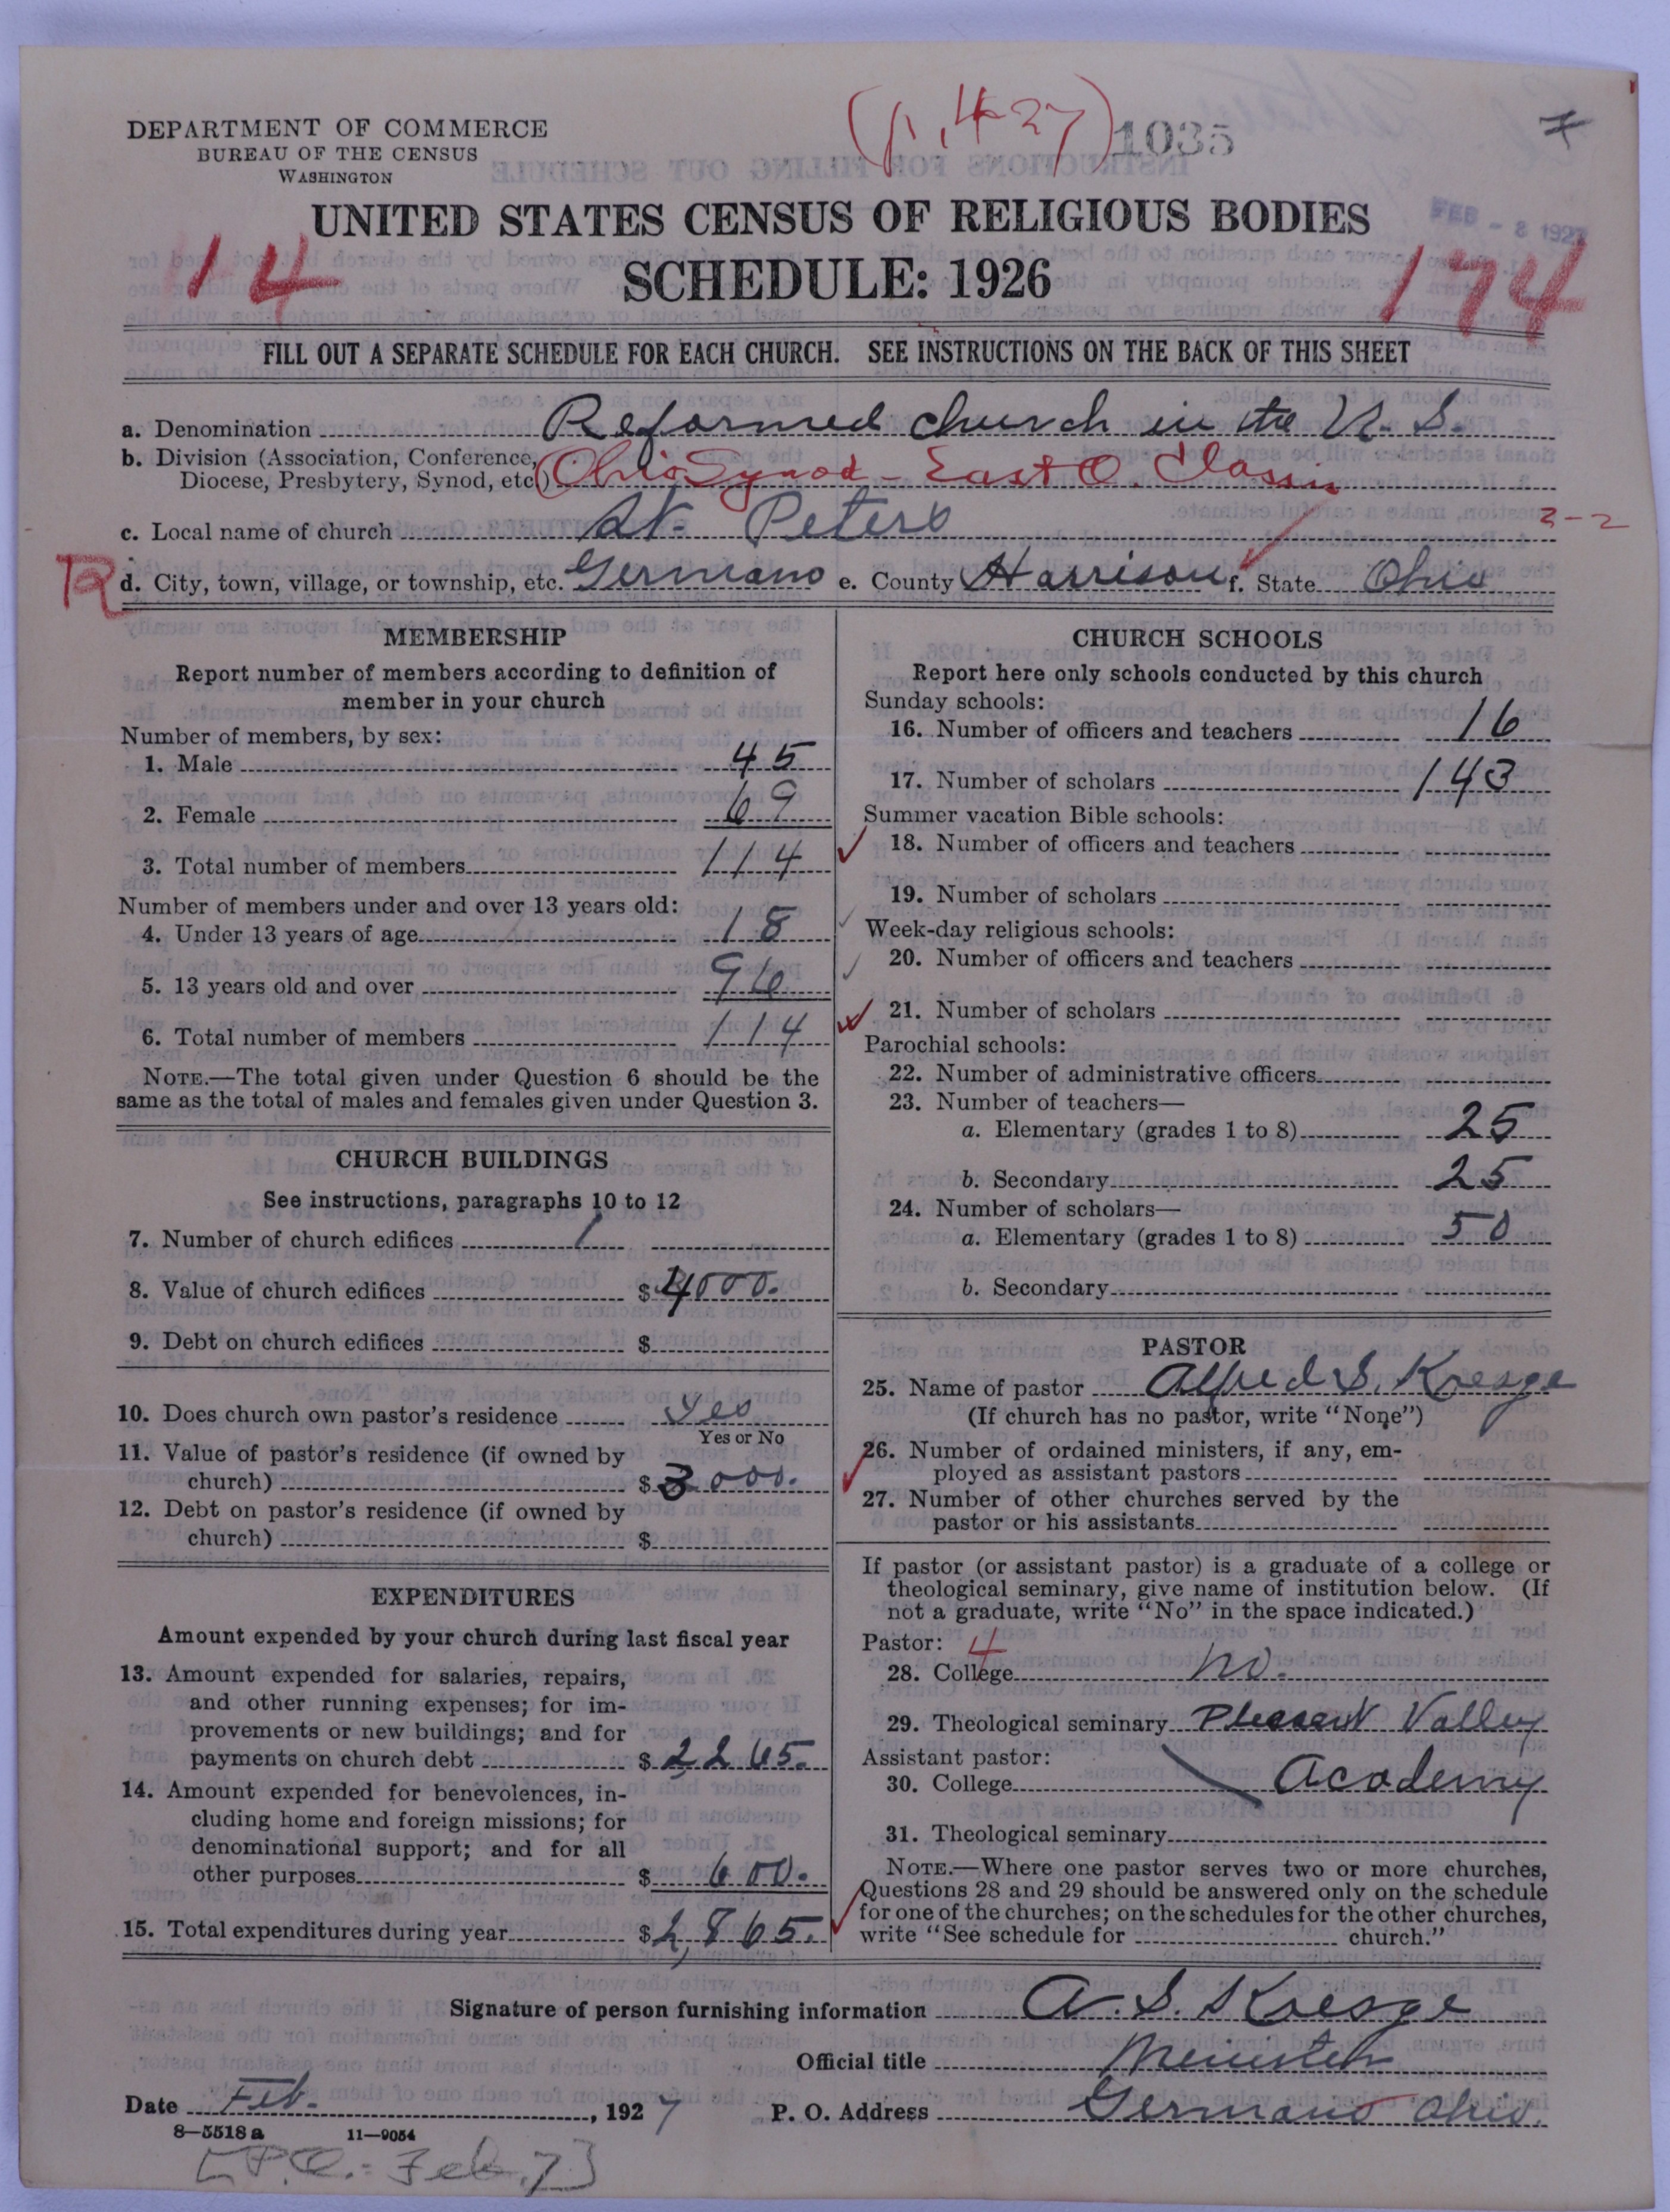 DEPARTMENT OF COMMERCE
BUREAU OF THE CENSUS
WASHINGTON
1035
FEB - 8 1927
UNITED STATES CENSUS OF RELIGIOUS BODIES
SCHEDULE: 1926
14
174
FILL OUT A SEPARATE SCHEDULE FOR EACH CHURCH. SEE INSTRUCTIONS ON THE BACK OF THIS SHEET
a. Denomination Reformed church in the U. S.
b. Division (Association, Conference,
Diocese, Presbytery, Synod, etc.) Ohio Synod - East O. Classis
c. Local name of church St. Peters
2-2
d. City, town, village, or township, etc. Germano e. County Harrison f. State Ohio
MEMBERSHIP
Report number of members according to definition of
member in your church
Number of members, by sex:
1. Male 45
2. Female 69
3. Total number of members 114
Number of members under and over 13 years old:
4. Under 13 years of age 18
5. 13 years old and over 96
6. Total number of members 114
NOTE.—The total given under Question 6 should be the
same as the total of males and females given under Question 3.
CHURCH BUILDINGS
See instructions, paragraphs 10 to 12
7. Number of church edifices 1
8. Value of church edifices $ 4000.
9. Debt on church edifices $
10. Does church own pastor's residence yes
Yes or No
11. Value of pastor's residence (if owned by
church) $ 3000.
12. Debt on pastor's residence (if owned by
church) $
EXPENDITURES
Amount expended by your church during last fiscal year
13. Amount expended for salaries, repairs,
and other running expenses; for im-
provements or new buildings; and for
payments on church debt $ 2265.
14. Amount expended for benevolences, in-
cluding home and foreign missions; for
denominational support; and for all
other purposes $ 600.
15. Total expenditures during year $ 2,865.
CHURCH SCHOOLS
Report here only schools conducted by this church
Sunday schools:
16. Number of officers and teachers 16
17. Number of scholars 143
Summer vacation Bible schools:
18. Number of officers and teachers
19. Number of scholars
Week-day religious schools:
20. Number of officers and teachers
21. Number of scholars
Parochial schools:
22. Number of administrative officers
23. Number of teachers—
a. Elementary (grades 1 to 8) 25
b. Secondary 25
24. Number of scholars—
a. Elementary (grades 1 to 8) 50
b. Secondary
PASTOR
25. Name of pastor Alfred S. Kresge
(If church has no pastor, write "None")
26. Number of ordained ministers, if any, em-
ployed as assistant pastors
27. Number of other churches served by the
pastor or his assistants
If pastor (or assistant pastor) is a graduate of a college or
theological seminary, give name of institution below. (If
not a graduate, write "No" in the space indicated.)
Pastor: 4
28. College no.
29. Theological seminary Pleasant Valley
Assistant pastor:
30. College Academy
31. Theological seminary
NOTE.—Where one pastor serves two or more churches,
Questions 28 and 29 should be answered only on the schedule
for one of the churches; on the schedules for the other churches,
write "See schedule for church."
Signature of person furnishing information A. S. Kresge
Official title Minister
Date Feb. , 1927 P. O. Address Germano Ohio.
8-5518a 11-9054
[P.C.: Feb. 7]